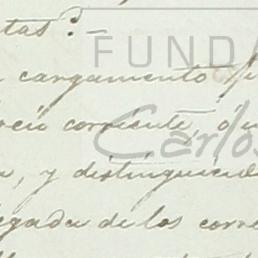 tas?-
FUNDA
cargamento
corriente, ó
Carlos
, y distinguien
egada de los corre